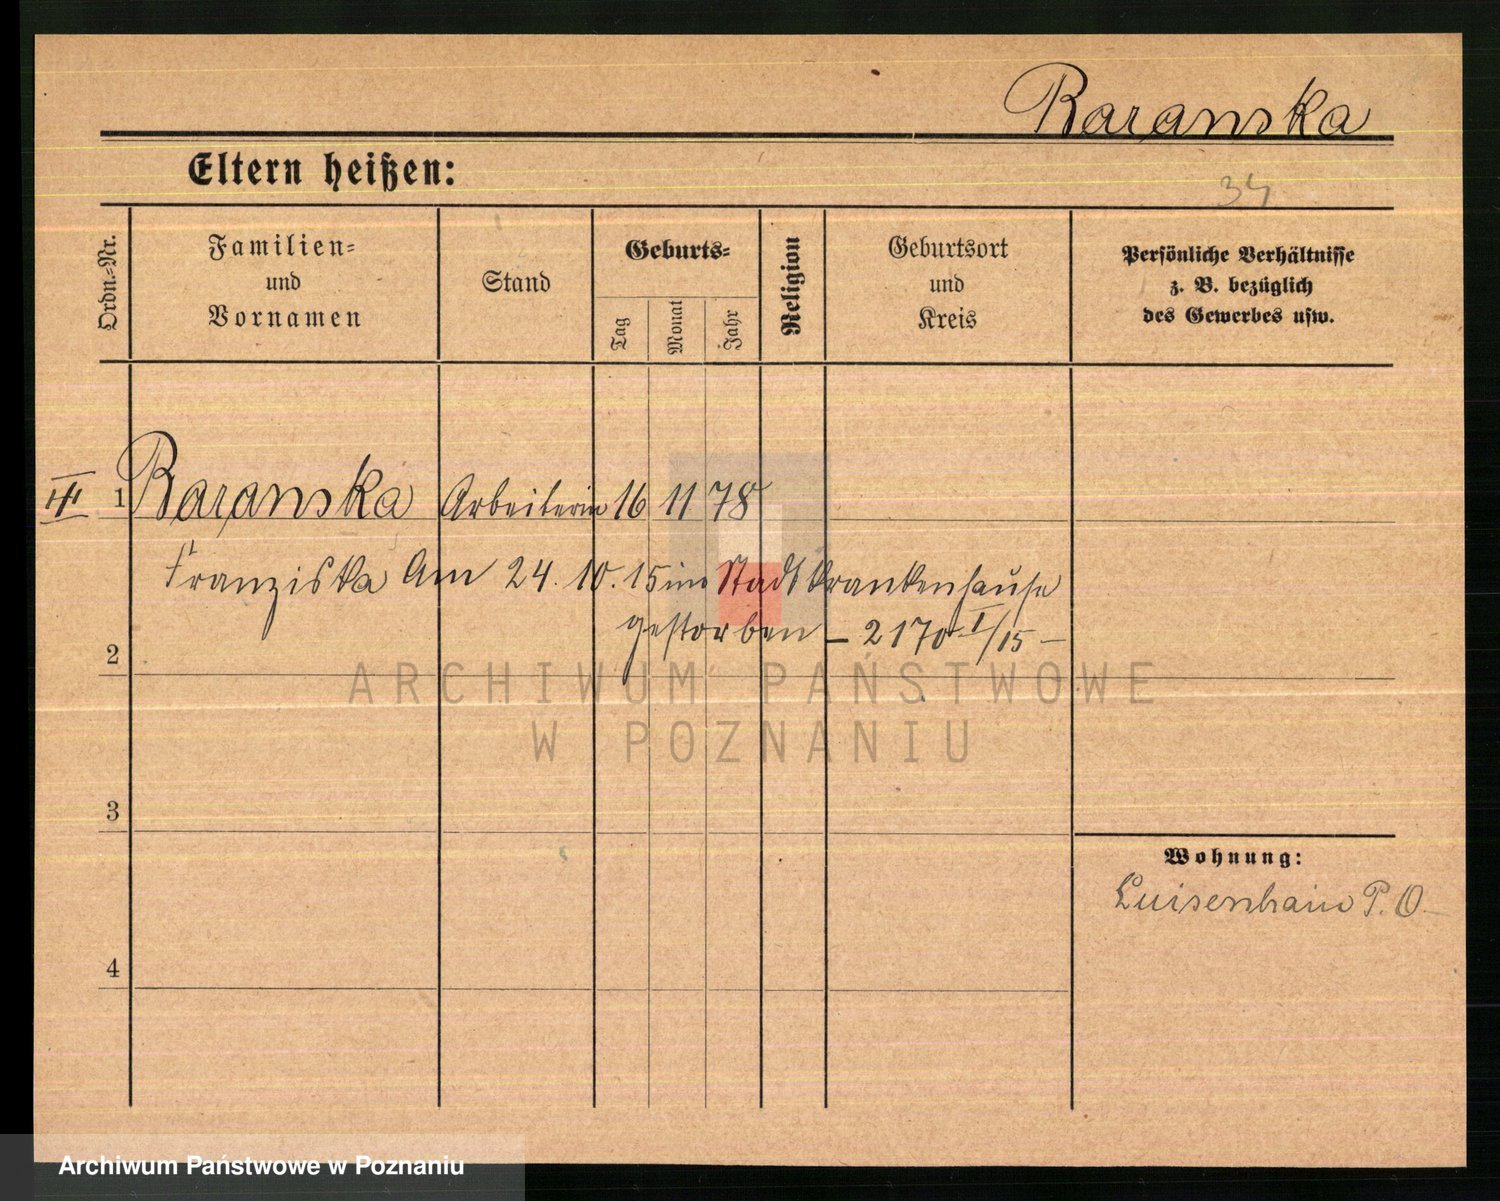 Baranska
Eltern heißen:
34
Ordn.=Nr.
Familien=
und
Vornamen
Stand
Geburts=
Tag
Monat
Jahr
Religion
Geburtsort
und
Kreis
Persönliche Verhältnisse
z. B. bezüglich
des Gewerbes usw.
1 Baranska Arbeiterin 16 11 78
Franziska Am 24. 10. 15 im Stadtkrankenhause
gestorben – 2170 I/15 –
2
3
4
Wohnung:
Luisenhain P. O.
ARCHIWUM PAŃSTWOWE
W POZNANIU
Archiwum Państwowe w Poznaniu